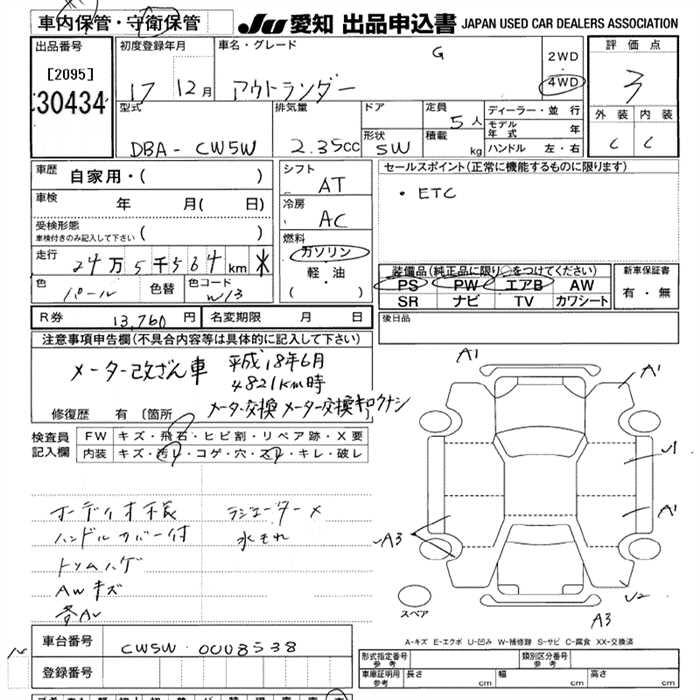 車内保管・守衛保管
JU 愛知 出品申込書 JAPAN USED CAR DEALERS ASSOCIATION
出品番号
[2095]
30434
初度登録年月
17 12月
車名・グレード
アウトランダー
G
2WD
・
4WD
評価点
3
外装 内装
C C
型式
DBA-CW5W
排気量
2.35cc
ドア
形状
SW
定員
5人
積載
kg
ディーラー・並行
モデル年式 年
ハンドル 左・右
車歴
自家用・( )
車検
年 月( 日)
受検形態
車検付きのみ記入して下さい ( )
走行
24万5千564km ＊
色
パール
色替
色コード
W13
シフト
AT
冷房
AC
燃料
ガソリン
軽・油
( ・ )
セールスポイント(正常に機能するものに限ります)
・ETC
装備品(純正品に限り○をつけてください)
PS PW エアB AW
SR ナビ TV カワシート
新車保証書
有・無
R券 13,760円
名変期限 月 日
後日品
注意事項申告欄(不具合内容等は具体的に記入して下さい)
メーター改ざん車
平成18年6月
4821km時
メーター交換 メーター交換キロクナシ
修復歴 有〔箇所
検査員
記入欄
FW キズ・飛石・ヒビ割・リペア跡・X要
内装 キズ・汚レ・コゲ・穴・スレ・キレ・破レ
オーディオ不良
ハンドルカバー付
トリムハゲ
AWキズ
ラジエーター×
水もれ
A1
A1
U1
A1
A3
U2
A3
スペア
A-キズ E-エクボ U-凹み W-補修跡 S-サビ C-腐食 XX-交換済
車台番号
CW5W-0008538
登録番号
形式指定番号
参考
類別区分番号
参考
車庫証明用
参考
長さ cm
幅 cm
高さ cm